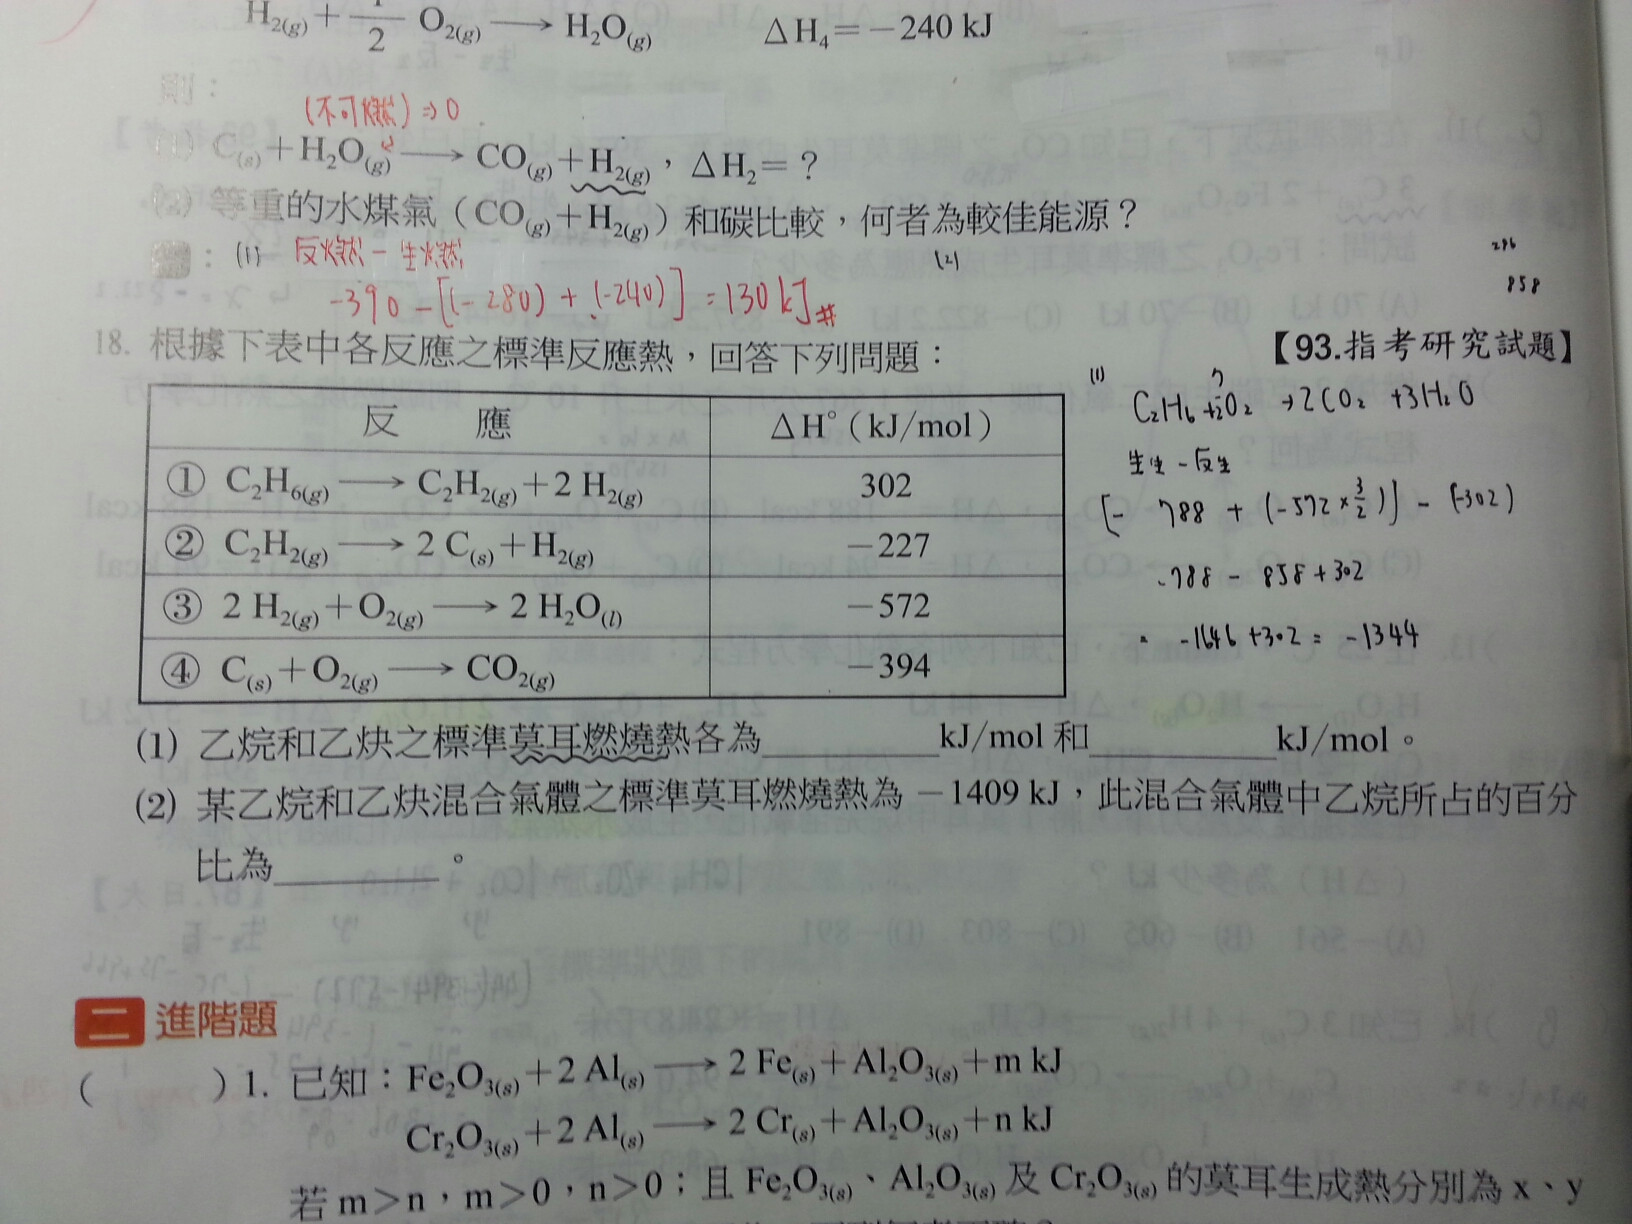 H₂(g) + 1/2 O₂(g) ⟶ H₂O(g)　　ΔH₄＝－240 kJ
則：
(不可燃) ⇒ 0
(1) C(s)＋H₂O(g) ⟶ CO(g)＋H₂(g)，ΔH₂＝？
(2) 等重的水煤氣（CO(g)＋H₂(g)）和碳比較，何者為較佳能源？
： (1) 反燃 － 生燃　(2)
-390 - [(-280) + (-240)] = 130 kJ #
286
858
18. 根據下表中各反應之標準反應熱，回答下列問題：
【93.指考研究試題】
反　應　ΔH°（kJ/mol）
① C₂H₆(g) ⟶ C₂H₂(g)＋2 H₂(g)　302
② C₂H₂(g) ⟶ 2 C(s)＋H₂(g)　－227
③ 2 H₂(g)＋O₂(g) ⟶ 2 H₂O(l)　－572
④ C(s)＋O₂(g) ⟶ CO₂(g)　－394
(1) C₂H₆ + 7/2 O₂ → 2CO₂ + 3H₂O
生生 - 反生
[- 788 + (-572 × 3/2)] - (-302)
-788 - 858 + 302
= -1646 + 302 = -1344
(1) 乙烷和乙炔之標準莫耳燃燒熱各為＿＿＿＿kJ/mol 和＿＿＿＿kJ/mol。
(2) 某乙烷和乙炔混合氣體之標準莫耳燃燒熱為－1409 kJ，此混合氣體中乙烷所占的百分
比為＿＿＿＿。
二 進階題
(　　) 1. 已知：Fe₂O₃(s)＋2 Al(s) ⟶ 2 Fe(s)＋Al₂O₃(s)＋m kJ
Cr₂O₃(s)＋2 Al(s) ⟶ 2 Cr(s)＋Al₂O₃(s)＋n kJ
若 m＞n，m＞0，n＞0；且 Fe₂O₃(s)、Al₂O₃(s) 及 Cr₂O₃(s) 的莫耳生成熱分別為 x、y